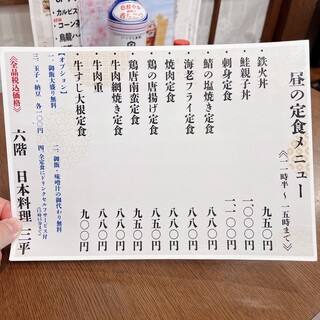 昼の定食メニュー
《一一時半〜一五時まで》
・鉄火丼 九五〇円
・鮭親子丼 一〇〇〇円
・刺身定食 一一〇〇円
・鯖の塩焼き定食 八八〇円
・海老フライ定食 八八〇円
・焼肉定食 八八〇円
・鶏の唐揚げ定食 八八〇円
・鶏唐南蛮定食 九五〇円
・牛肉網焼き定食 八八〇円
・牛肉重 八八〇円
・牛すじ大根定食 九〇〇円
【オプション】
一、御飯大盛り無料 二、御飯・味噌汁の御代わり無料
三、玉子・納豆 各一〇〇円 四、全定食にドリンクセルフサービス付
《全品税込価格》
六階 日本料理 三平
・カルピス
・コーン
・烏龍